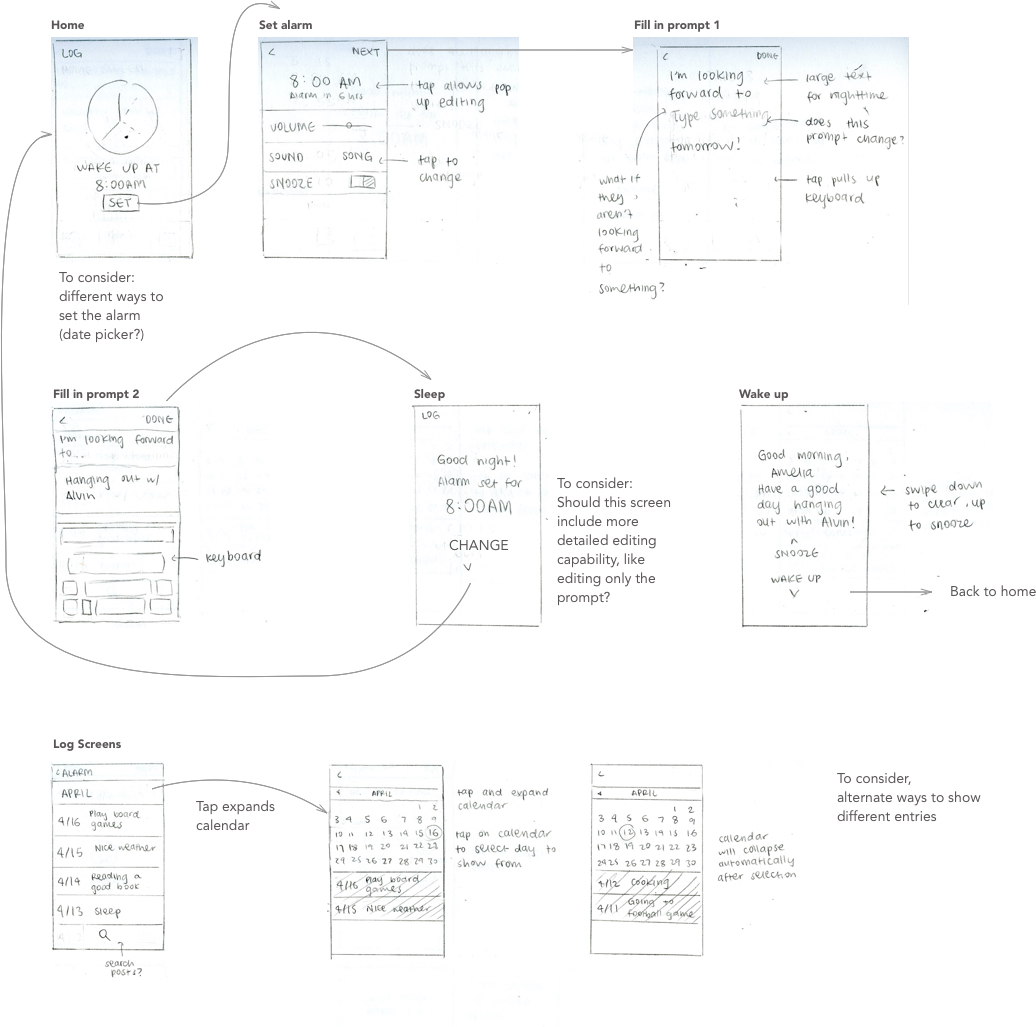 Home
LOG
WAKE UP AT
8:00AM
SET
To consider:
different ways to
set the alarm
(date picker?)
Set alarm
< NEXT
8:00 AM
alarm in 6 hrs
VOLUME
SOUND SONG
SNOOZE
tap allows pop
up editing
tap to
change
Fill in prompt 1
< DONE
I'm looking
forward to
Type something
tomorrow!
large text
for nighttime
does this
prompt change?
tap pulls up
keyboard
what if
they
aren't
looking
forward
to
something?
Fill in prompt 2
< DONE
I'm looking forward
to...
Hanging out w/
Alvin
keyboard
Sleep
LOG
Good night!
Alarm set for
8:00AM
CHANGE
To consider:
Should this screen
include more
detailed editing
capability, like
editing only the
prompt?
Wake up
Good morning,
Amelia
Have a good
day hanging
out with Alvin!
SNOOZE
WAKE UP
swipe down
to clear, up
to snooze
Back to home
Log Screens
< ALARM
APRIL
4/16 Play board
games
4/15 Nice weather
4/14 Reading a
good book
4/13 Sleep
search
posts?
Tap expands
calendar
<
APRIL
1 2
3 4 5 6 7 8 9
10 11 12 13 14 15 16
17 18 19 20 21 22 23
24 25 26 27 28 29 30
4/16 Play board
games
4/15 Nice weather
tap and expand
calendar
tap on calendar
to select day to
show from
<
APRIL
1 2
3 4 5 6 7 8 9
10 11 12 13 14 15 16
17 18 19 20 21 22 23
24 25 26 27 28 29 30
4/12 Cooking
4/11 Going to
football game
calendar
will collapse
automatically
after selection
To consider,
alternate ways to show
different entries